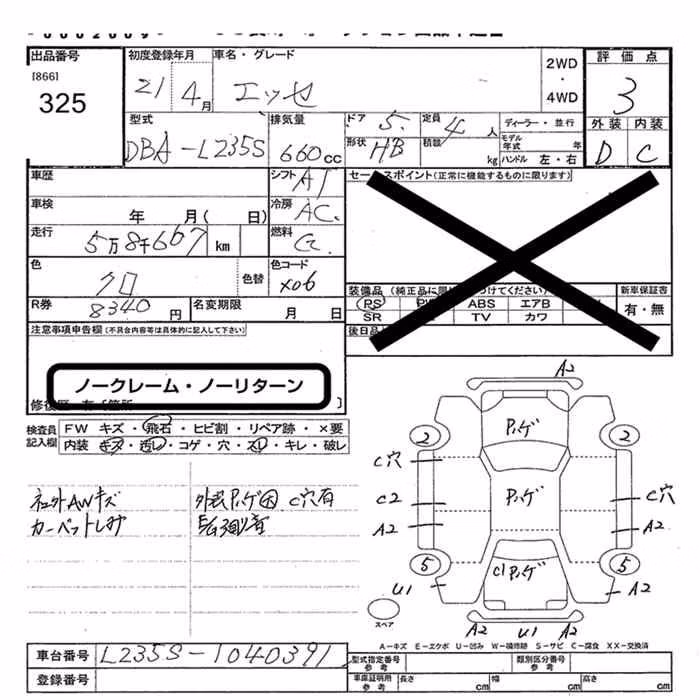 出品番号 初度登録年月 車名・グレード 2WD・4WD 評価点
[866]
325
21 4月 エッセ 3
型式 排気量 ドア 5 定員 4人 ディーラー・並行 外装 内装
DBA-L235S 660cc 形状 HB 積載 kg モデル年式 年 ハンドル 左・右 D C
車歴 シフト AT セールスポイント(正常に機能するものに限ります)
車検 年 月( 日) 冷房 AC
走行 5万8千667 km 燃料 G
色 クロ 色替 色コード X06 装備品 (純正品に限 つけてください) 新車保証書
PS ABS エアB 有・無
SR TV カワ
R券 8340円 名変期限 月 日 後日品
注意事項申告欄 (不具合内容等は具体的に記入して下さい)
ノークレーム・ノーリターン
検査員記入欄 FW キズ・飛石・ヒビ割・リペア跡・×要
内装 キズ・汚レ・コゲ・穴・スレ・キレ・破レ
AWキズ 外装ハゲ大 C穴有
カーペットしみ
A2
ハゲ
2 2
C穴
ハゲ
C2 C穴
A2 A2
5 C1ハゲ 5
U1 A2
スペア
A2 U1 A2
A-キズ E-エクボ U-凹み W-補修跡 S-サビ C-腐食 XX-交換済
車台番号 L235S-1040391 型式指定番号 参考 類別区分番号 参考
登録番号 車庫証明用 参考 長さ cm 幅 cm 高さ cm